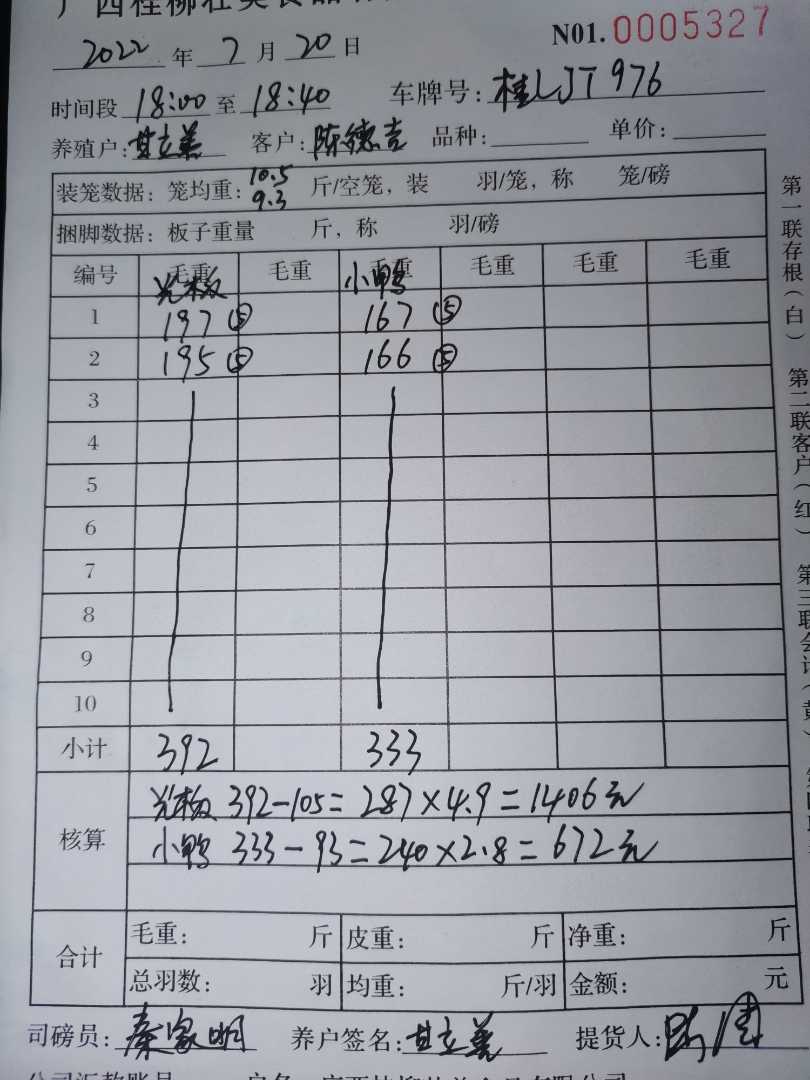 广西桂柳牡
N01. 0005327
2022 年 7 月 20 日
时间段 18:00 至 18:40 车牌号: 桂LJT976
养殖户: 甘立善 客户: 陈德吉 品种: 单价:
装笼数据: 笼均重: 10.5 9.3 斤/空笼, 装 羽/笼, 称 笼/磅
捆脚数据: 板子重量 斤, 称 羽/磅
编号 毛重 毛重 毛重 毛重 毛重 毛重
光板 小鸭
1 197 ⑤ 167 ⑤
2 195 ⑤ 166 ⑤
3
4
5
6
7
8
9
10
小计 392 333
核算 光板 392-105=287×4.9=1406元
小鸭 333-93=240×2.8=672元
合计 毛重: 斤 皮重: 斤 净重: 斤
总羽数: 羽 均重: 斤/羽 金额: 元
司磅员: 秦家明 养户签名: 甘立善 提货人:
第一联存根(白) 第二联客户(红) 第三联会计(黄)